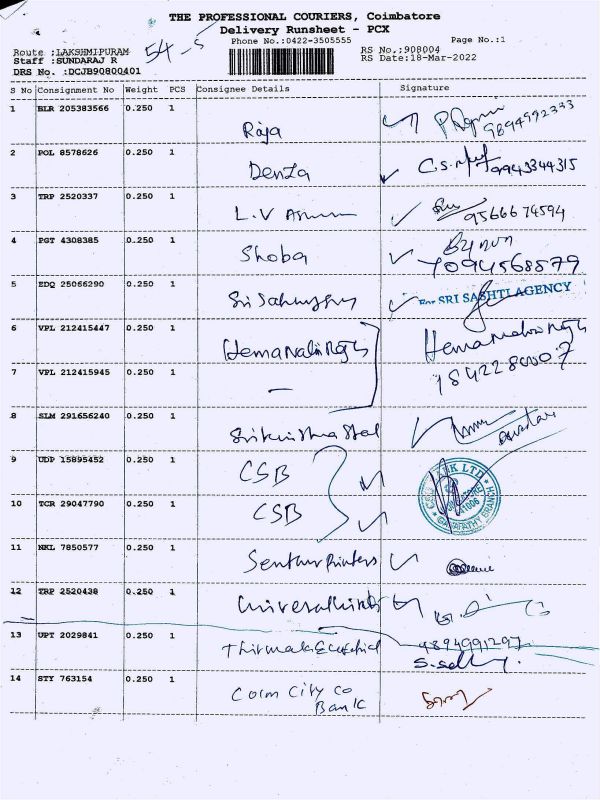 THE PROFESSIONAL COURIERS, Coimbatore
Delivery Runsheet - PCX
Phone No.:0422-3505555 Page No.:1
Route :LAKSHMIPURAM
Staff :SUNDARAJ R
54-5
RS No.:908004
RS Date:18-Mar-2022
DRS No. :DCJB90800401
S No Consignment No Weight PCS Consignee Details Signature
1 BLR 205383566 0.250 1 Raja 9894992333
2 POL 8578626 0.250 1 Denza C.S. 9943344315
3 TRP 2520337 0.250 1 L.V 9566674594
4 PGT 4308385 0.250 1 Shoba 7094568579
5 EDQ 25066290 0.250 1 Sri For SRI SASHTI AGENCY
6 VPL 212415447 0.250 1 Hemanalini
7 VPL 212415945 0.250 1 —
8 SLM 291656240 0.250 1 Srikrishna Steel
9 UDP 15895452 0.250 1 CSB
10 TCR 29047790 0.250 1 CSB
CSB BANK LTD
GANAPATHY BRANCH
11 NKL 7850577 0.250 1 Senthur Printers
12 TRP 2520438 0.250 1 Universal
13 UPT 2029841 0.250 1 Thirmala 9894991297
14 STY 763154 0.250 1 Coim City Co
Bank